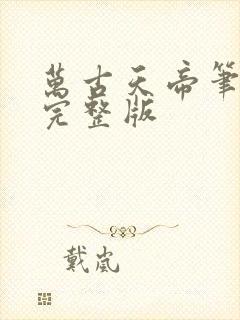 萬古天帝筆
完整版
戴嵐